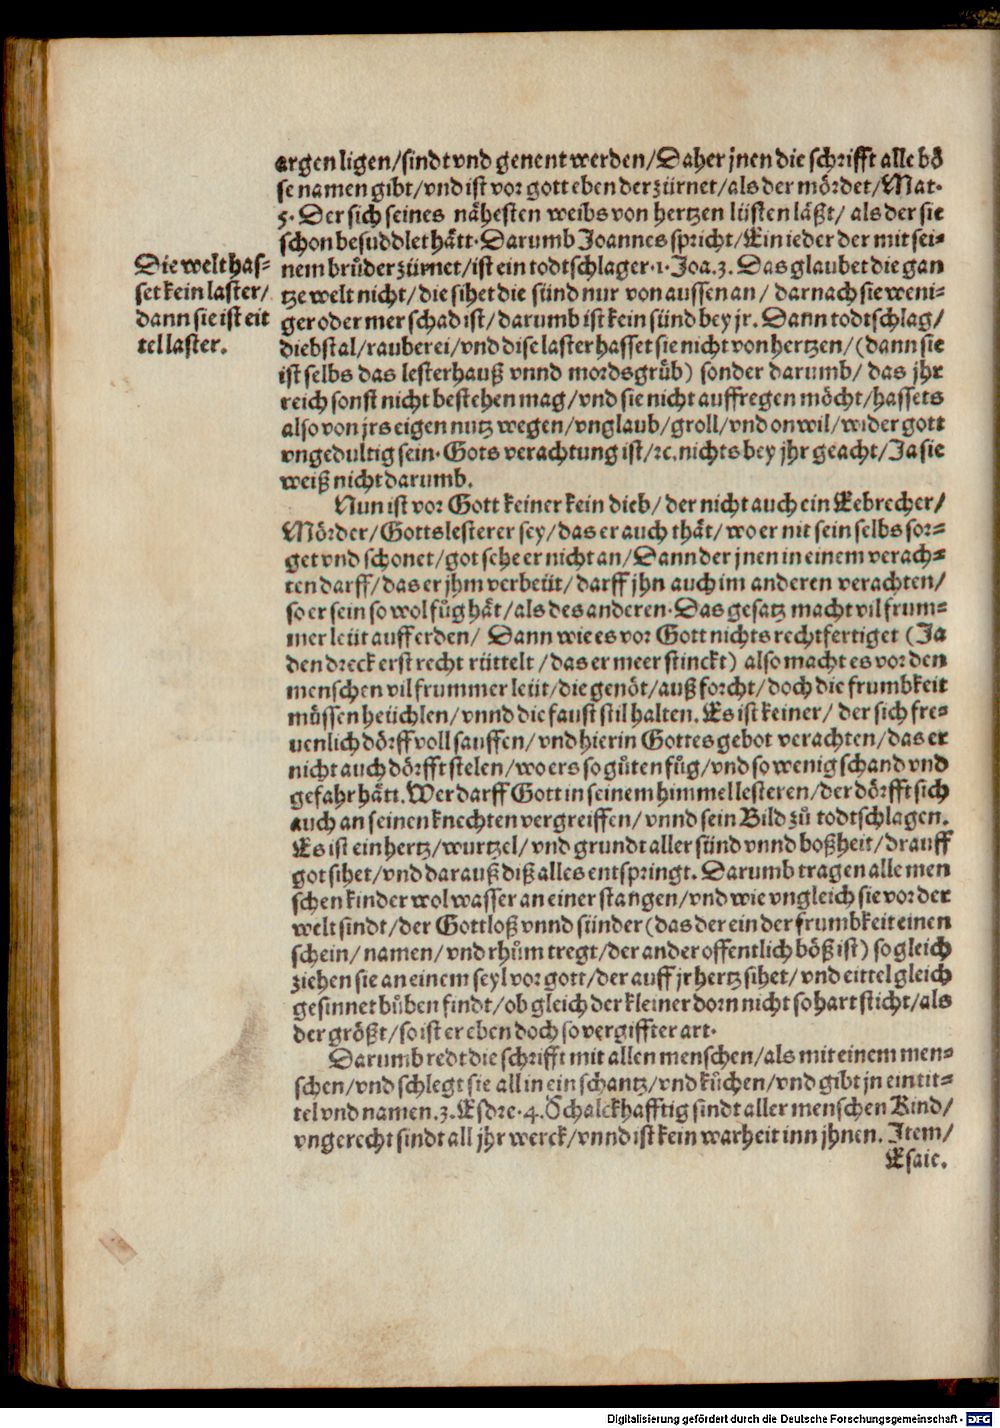 argen ligen/ sindt vnd genent werden/ Daher jnen die schrifft alle bö
se namen gibt/ vnd ist vor gott eben der zürnet/ als der mördet/ Mat.
5. Der sich seines nähesten weibs von hertzen lüsten läßt/ als der sie
schon besuddlet hätt. Darumb Joannes spricht/ Ein ieder der mit sei=
nem brůder zürnet/ ist ein todtschlager. 1. Joa. 3. Das glaubet die gan
tze welt nicht/ die sihet die sünd nur von aussen an/ darnach sie weni=
ger oder mer schad ist/ darumb ist kein sünd bey jr. Dann todtschlag/
diebstal/ rauberei/ vnd dise laster hasset sie nicht von hertzen/ (dann sie
ist selbs das lesterhauß vnnd mordsgrůb) sonder darumb/ das jhr
reich sonst nicht bestehen mag/ vnd sie nicht auffregen möcht/ hassets
also von jrs eigen nutz wegen/ vnglaub/ groll/ vnd onwil/ wider gott
vngedultig sein. Gots verachtung ist/ ꝛc. nichts bey jhr geacht/ Ja sie
weiß nicht darumb.
Die welt has=
set kein laster/
dann sie ist eit
tel laster.
Nun ist vor Gott keiner kein dieb/ der nicht auch ein Eebrecher/
Mörder/ Gottslesterer sey/ das er auch thät/ wo er nit sein selbs sor=
get vnd schonet/ got sehe er nicht an/ Dann der jnen in einem verach=
ten darff/ das er jhm verbeüt/ darff jhn auch im anderen verachten/
so er sein so wol fůg hät/ als des anderen. Das gesatz macht vil frum=
mer leüt auff erden/ Dann wie es vor Gott nichts rechtfertiget (Ja
den dreck erst recht rüttelt/ das er meer stinckt) also macht es vor den
menschen vil frummer leüt/ die genöt/ auß forcht/ doch die frumbkeit
müssen heüchlen/ vnnd die faust stil halten. Es ist keiner/ der sich fre=
uenlich dörff voll sauffen/ vnd hierin Gottes gebot verachten/ das er
nicht auch dörfft stelen/ wo ers so gůten fůg/ vnd so wenig schand vnd
gefahr hätt. Wer darff Gott in seinem himmel lesteren/ der dörfft sich
auch an seinen knechten vergreiffen/ vnnd sein Bild zů todtschlagen.
Es ist ein hertz/ wurtzel/ vnd grundt aller sünd vnnd boßheit/ drauff
got sihet/ vnd darauß diß alles entspringt. Darumb tragen alle men
schen kinder wol wasser an einer stangen/ vnd wie vngleich sie vor der
welt sindt/ der Gottloß vnnd sünder (das der ein der frumbkeit einen
schein/ namen/ vnd rhům tregt/ der ander offentlich böß ist) so gleich
ziehen sie an einem seyl vor gott/ der auff jr hertz sihet/ vnd eittel gleich
gesinnet bůben findt/ ob gleich der kleiner dorn nicht so hart sticht/ als
der größt/ so ist er eben doch so vergiffter art.
Darumb redt die schrifft mit allen menschen/ als mit einem men=
schen/ vnd schlegt sie all in ein schantz/ vnd kůchen/ vnd gibt jn ein tit=
tel vnd namen. 3. Esdre. 4. Schalckhafftig sindt aller menschen Kind/
vngerecht sindt all jhr werck/ vnnd ist kein warheit inn jhnen. Item/
Esaie.
Digitalisierung gefördert durch die Deutsche Forschungsgemeinschaft - DFG